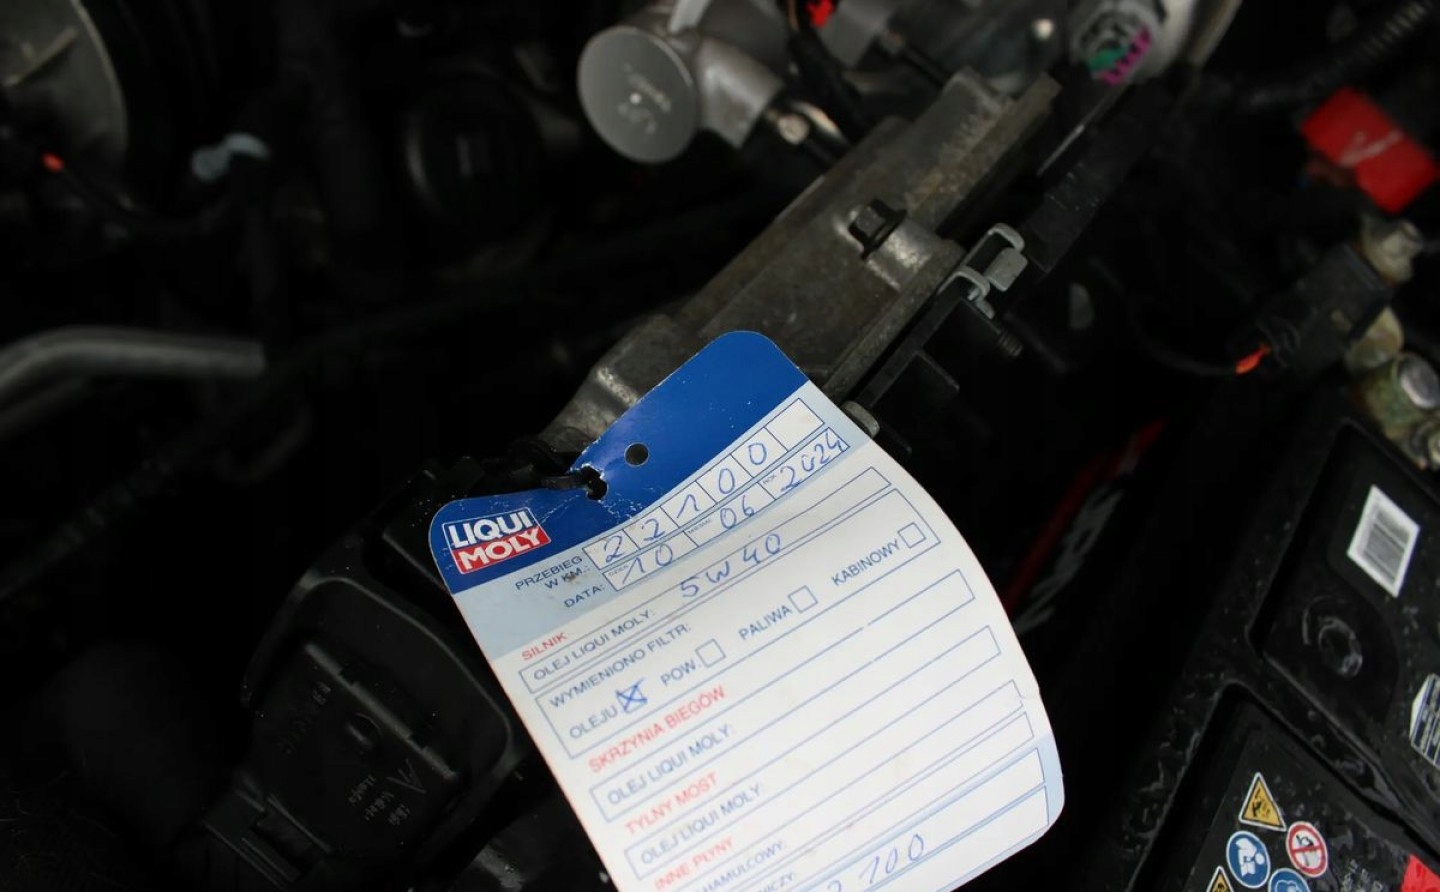 LIQUI
MOLY
PRZEBIEG
W KM.: 2 2 1 0 0
DATA: DZIEŃ 10 MIESIĄC 06 ROK 2024
SILNIK
OLEJ LIQUI MOLY: 5W40
WYMIENIONO FILTR:
OLEJU POW. PALIWA KABINOWY
SKRZYNIA BIEGÓW
OLEJ LIQUI MOLY:
TYLNY MOST
OLEJ LIQUI MOLY:
INNE PŁYNY
HAMULCOWY:
100